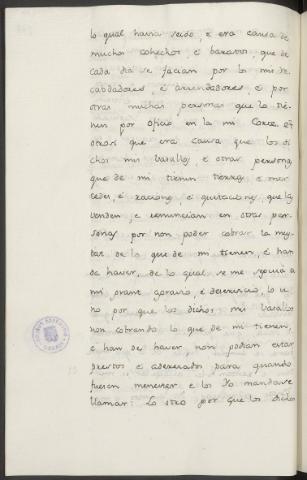 lo qual havia seido, e era causa de
muchos cohechos, é baratos, que de
cada dia se facian por los mis Re
cabdadores, é arrendadores, é por
otras muchas personas que lo tie-
nen por oficio en la mi Corte. Et
otrosi que era causa que los di
chos mis vasallos, é otras personas
que de mi tienen tierras, é mer
cedes, é raciones, é quitaciones, que las
venden, e renuncian en otras per-
sonas por non poder cobrar la mey
tad de lo que de mi tienen, é han
de haver, de lo qual se me seguia a
mi grant agravio, é deservicio, lo u
no por que los dichos mis vasallos
non cobrando lo que de mi tienen,
é han de haver, non podian estar
prestos é aderezados para quando
fuesen menester, e los Yo mandase
llamar: Lo otro por que los dichos